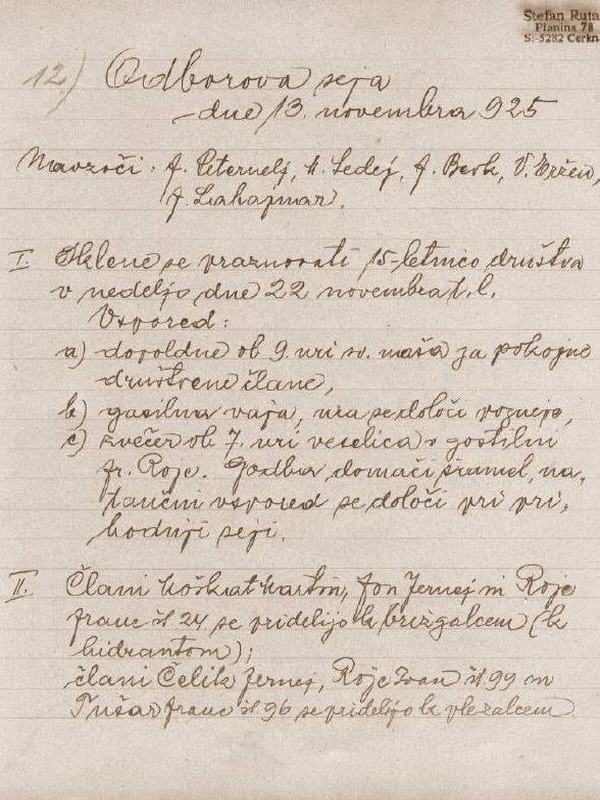 Stefan Ruta
Planina 78
SI-5282 Cerkn
12) Odborova seja
dne 13. novembra 925
Navzoči: J. Peternelj, M. Sedej, J. Berk, V. Eržen,
J. Lahajnar.
I Sklene se praznovati 15-letnico društva
v nedeljo dne 22 novembra t. l.
Vspored:
a) dopoldne ob 9. uri sv. maša za pokojne
društvene člane,
b) gasilna vaja, ura se določi pozneje,
c) zvečer ob 7. uri veselica v gostilni
fr. Roje. Godba domači šramel, na-
tančni vspored se določi pri pri-
hodnji seji.
II. Člani Koškat Martin, Jernej in Roje
franc št 24 se pridelijo k brizgalcem (k
hidrantom);
člani Čelik Jernej, Roje Ivan št. 99 in
Tušar franc št. 96 se pridelijo k plezalcem